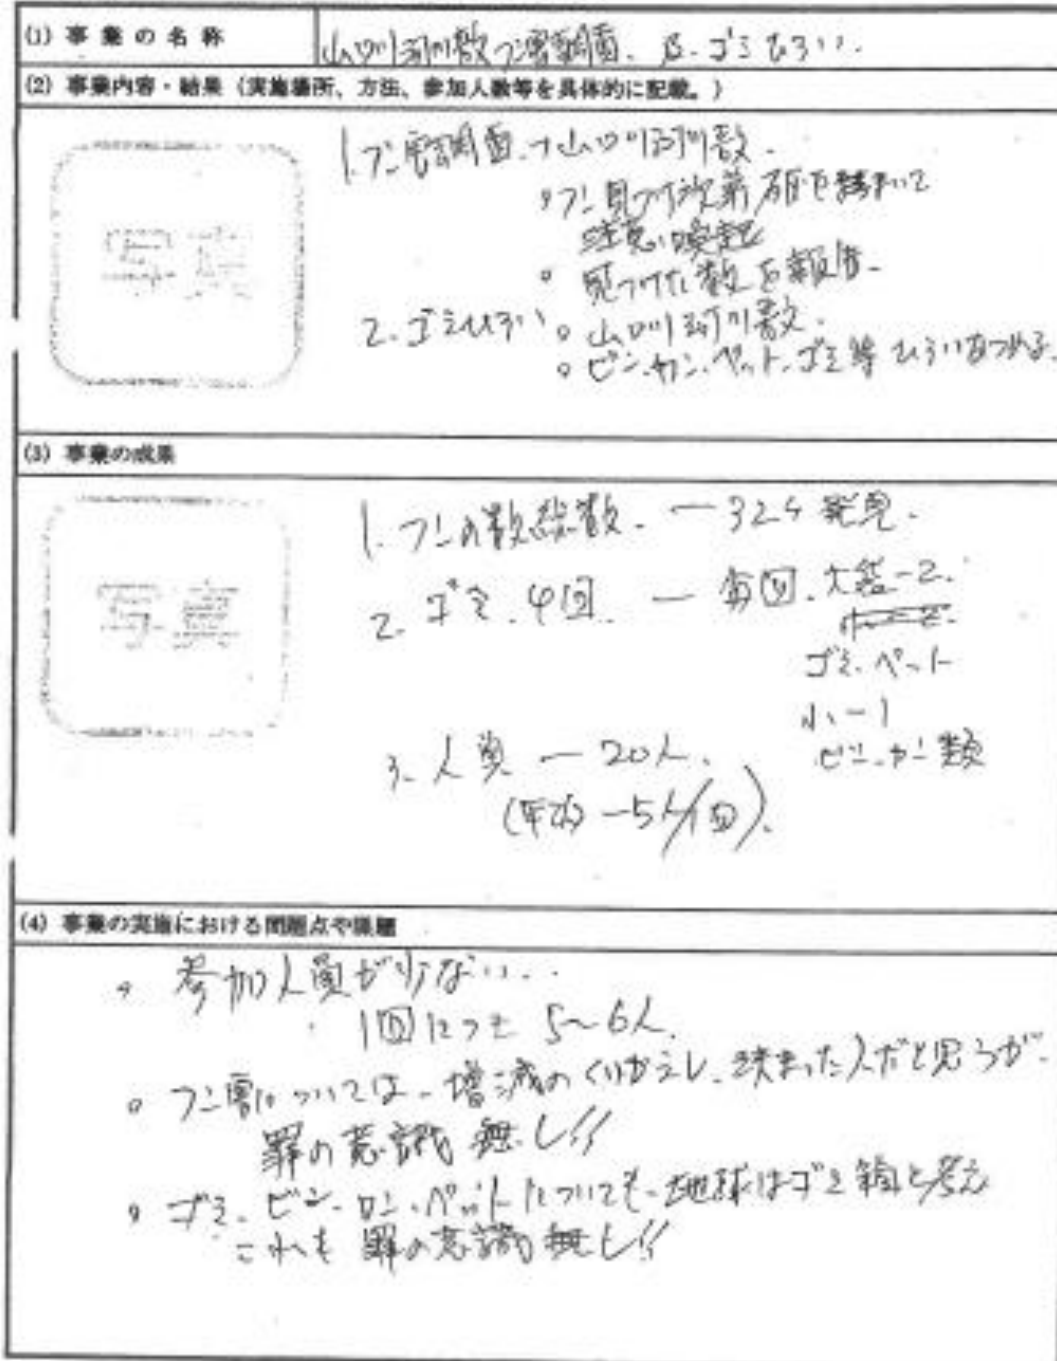 (1) 事業の名称
山口川河川敷フン害調査、及、ゴミひろい.
(2) 事業内容・結果（実施場所、方法、参加人数等を具体的に記載。）
写真
1. フン害調査 → 山口川河川敷.
○フン見つけ次第 石灰を蒔いて
注意喚起
○ 見つけた数を報告.
2. ゴミひろい ○ 山口川河川敷.
○ ビン.カン.ペット.ゴミ等 ひろいあつめる.
(3) 事業の成果
写真
1. フンの数総数. ー 324 発見.
2. ゴミ. 4回. ー 毎回. 大袋-2.
ゴミ.ペット
小-1
ビン.カン 類
3. 人員 ー 20人.
(平均 -5人/1回).
(4) 事業の実施における問題点や課題
○ 参加人員が少ない..
・1回につき 5〜6人.
○ フン害については、増減のくりかえし、決まった人だと思うが、
罪の意識 無し!!
○ ゴミ、ビン、カン、ペットについても、地球はゴミ箱と考え
これも 罪の意識 無し!!